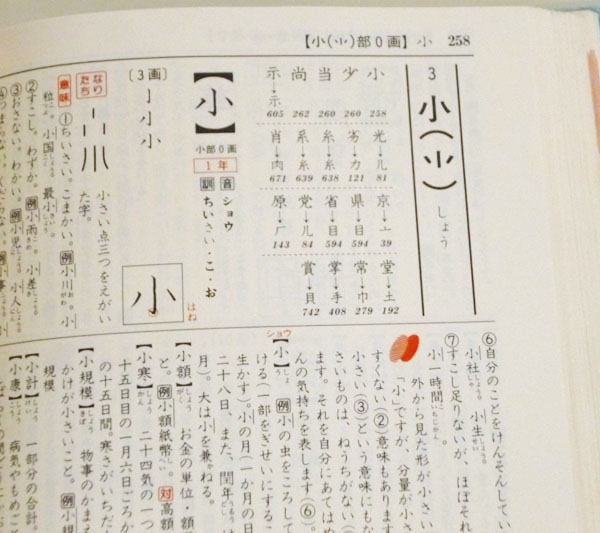 【小(⺌)部0画】 小 258
3 小(⺌) しょう
小 258
少 260
当 260
尚 262
示→示 605
光→儿 81
劣→力 121
糸→糸 638
系→糸 639
肖→肉 671
京→亠 39
県→目 594
省→目 594
党→儿 84
原→厂 143
堂→土 192
常→巾 279
掌→手 408
賞→貝 742
【小】
小部0画
1年
音 ショウ
訓 ちいさい・こ・お
〔3画〕
亅 小 小
小
はね
なりたち
小さい点三つをえがい
た字。
意味
①ちいさい。こまかい。例小川。小
粒。小国。最小。
②すこし。わずか。例小雨。小差。
③おさない。わかい。例小児。小人。
⑥自分のことをけんそんしてい
小社。小生。
⑦すこし足りないが、ほぼそれ
小一時間。
外から見た形が小さい
「小」ですが、分量が小さ
すくない(②)意味もあります
小さい(③)という意味にもな
さいものは、ねうちがない(
ます。それを自分にあてはめ
んの気持ちを表します(⑥)。
【小】しょう 例小の虫をころして
ショウ
ける(一部をぎせいにするこ
生かす)。小の月(一か月の日
二十八日、また、閏年
月)。大は小を兼ねる。
【小額】しょうがく お金の単位・額
と。例小額紙幣。対高額
【小寒】しょうかん 二十四気の一つ
十五日目の一月六日ごろか
の十五日間。寒さがいちだ
【小規模】しょうきぼ 物事のかまえ
かけが小さいこと。例小規
規模
【小計】しょうけい 一部分の合計。
【小康】しょうこう 病気やもめごと